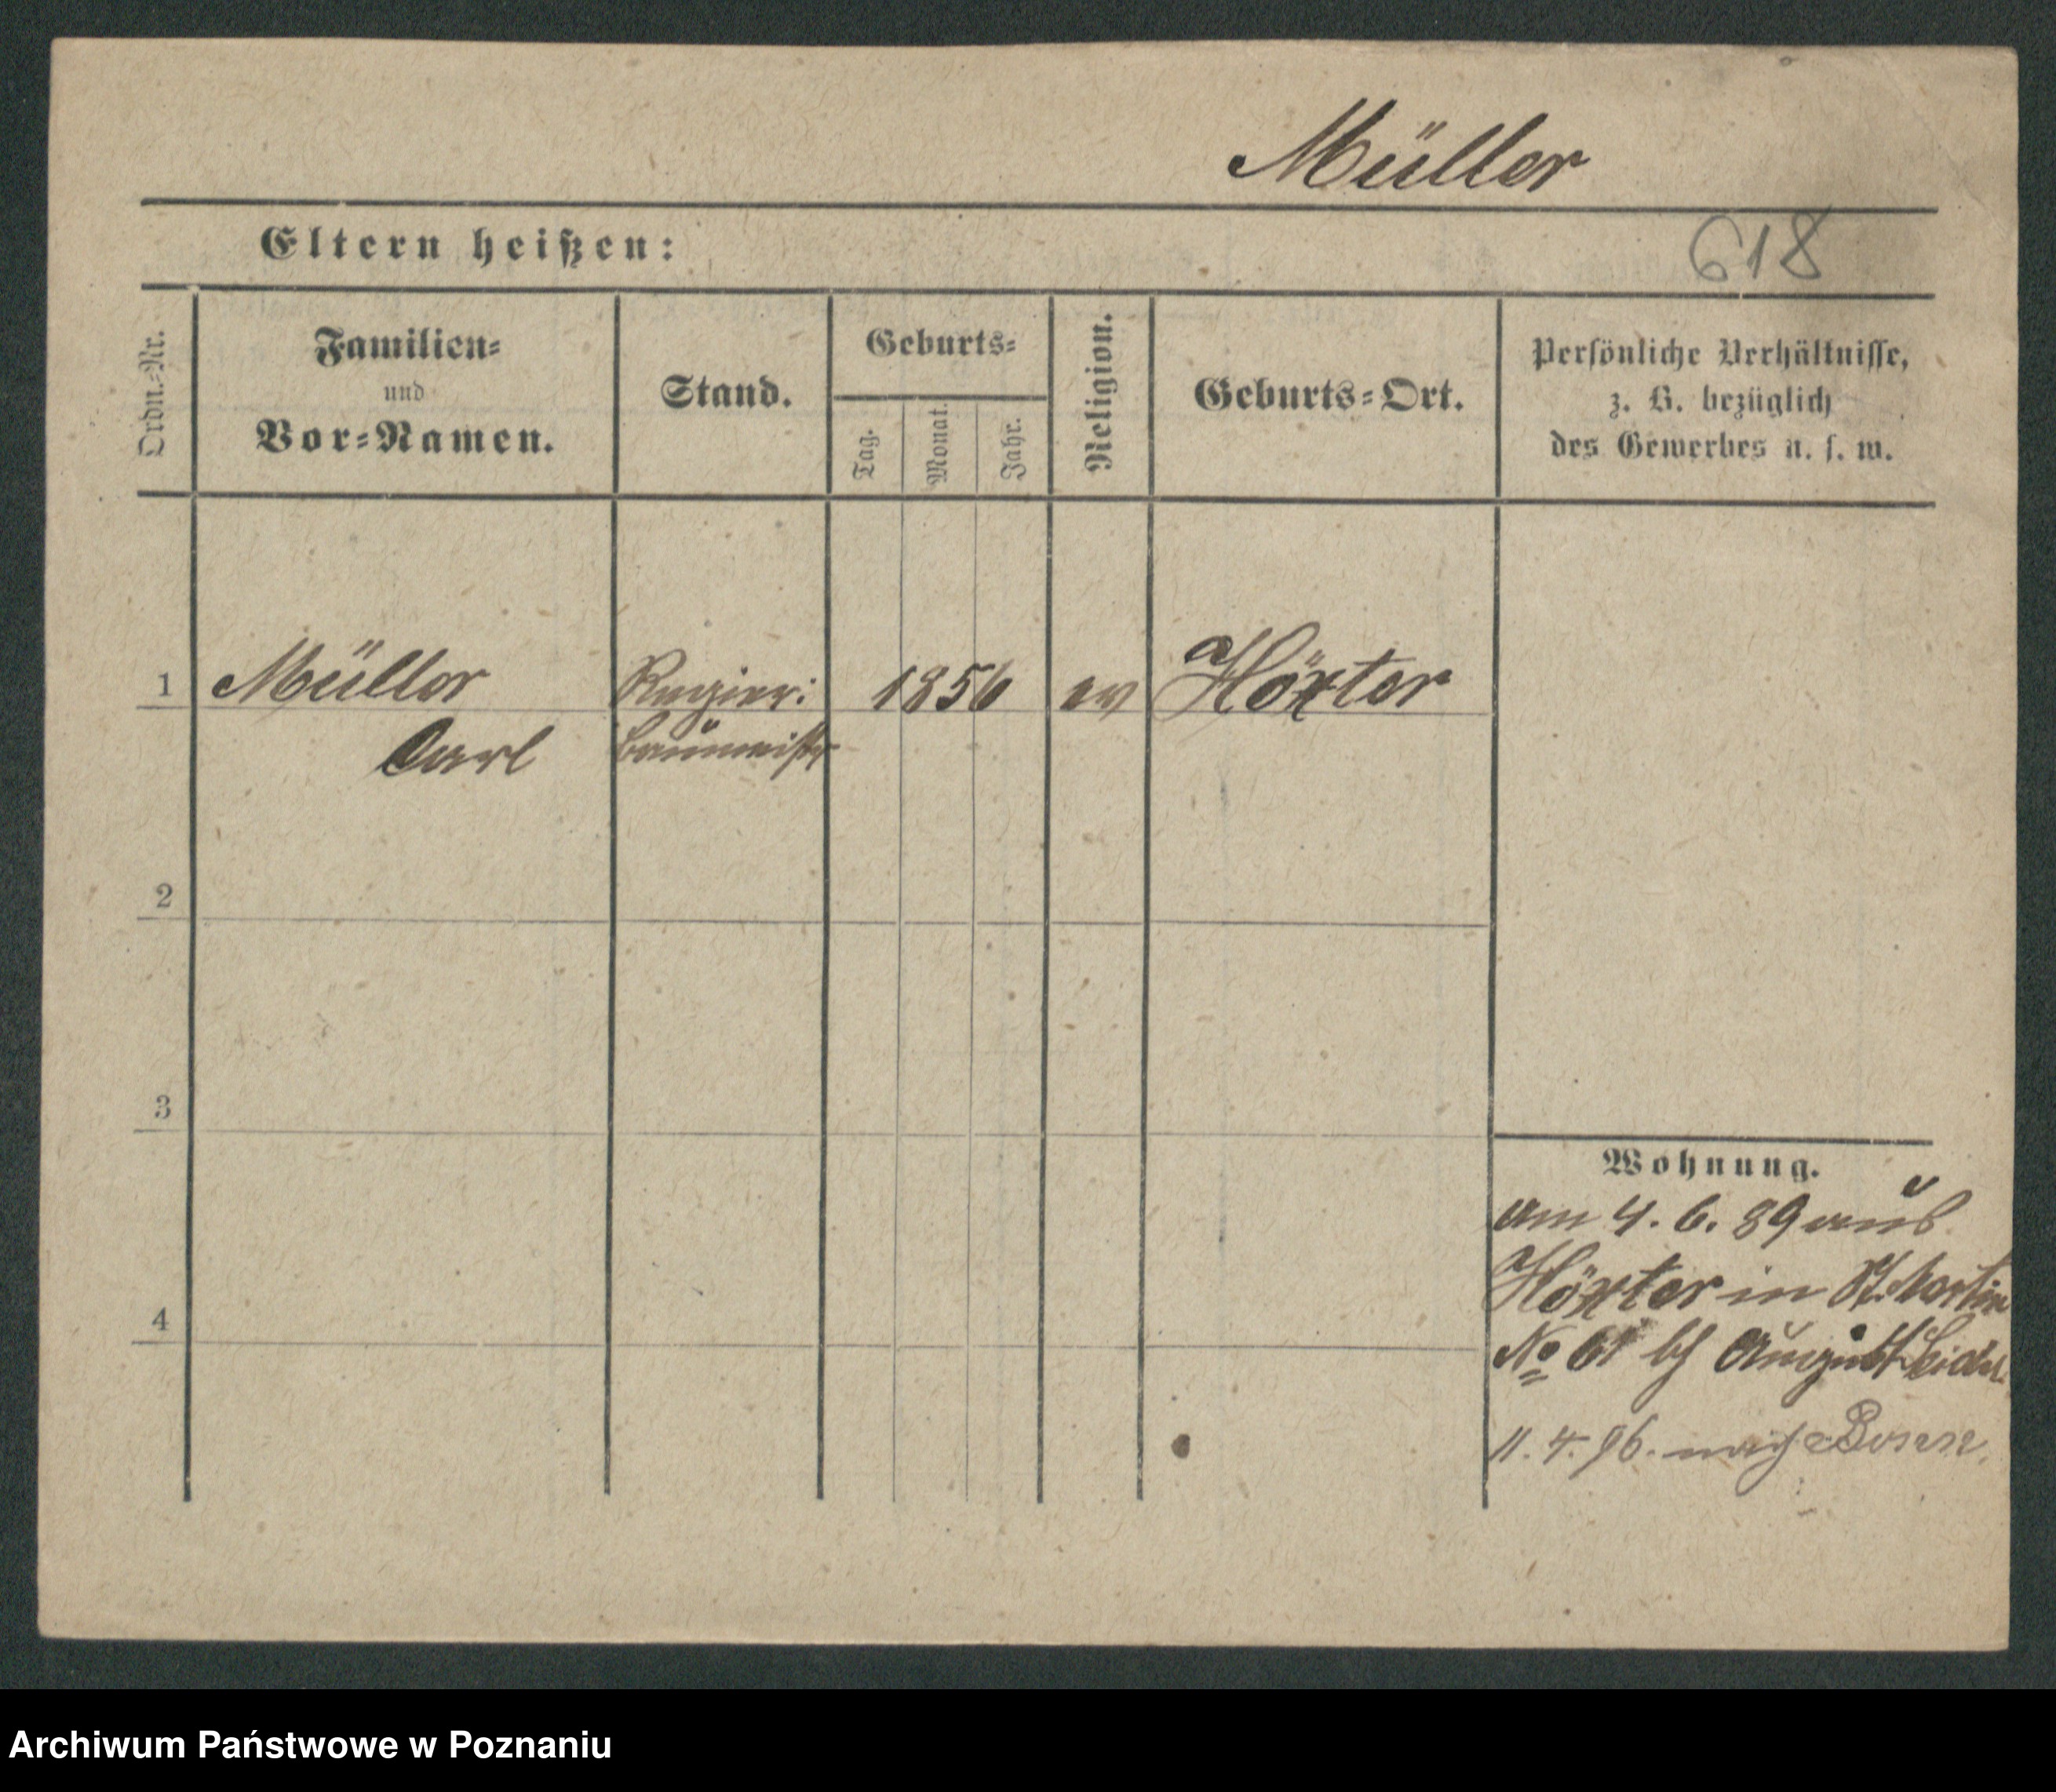 Müller
Eltern heißen:
618
Ordn.-Nr.
Familien-
und
Vor-Namen.
Stand.
Geburts-
Tag.
Monat.
Jahr.
Religion.
Geburts-Ort.
Persönliche Verhältnisse,
z. B. bezüglich
des Gewerbes u. s. w.
1 Müller Regier: 1856 ev Höxter
Carl baumeister
2
3
4
Wohnung.
am 4. 6. 89 aus
Höxter in St. Martin
No 61 bei August
11. 4. 96. nach Bonn.
Archiwum Państwowe w Poznaniu